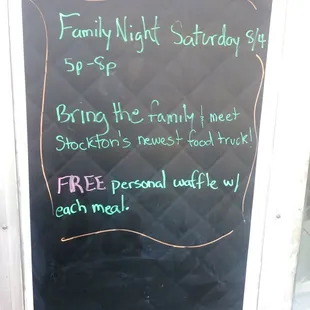 Family Night Saturday 8/4
5p-8p
Bring the family & meet
Stockton's newest food truck!
FREE personal waffle w/
each meal.